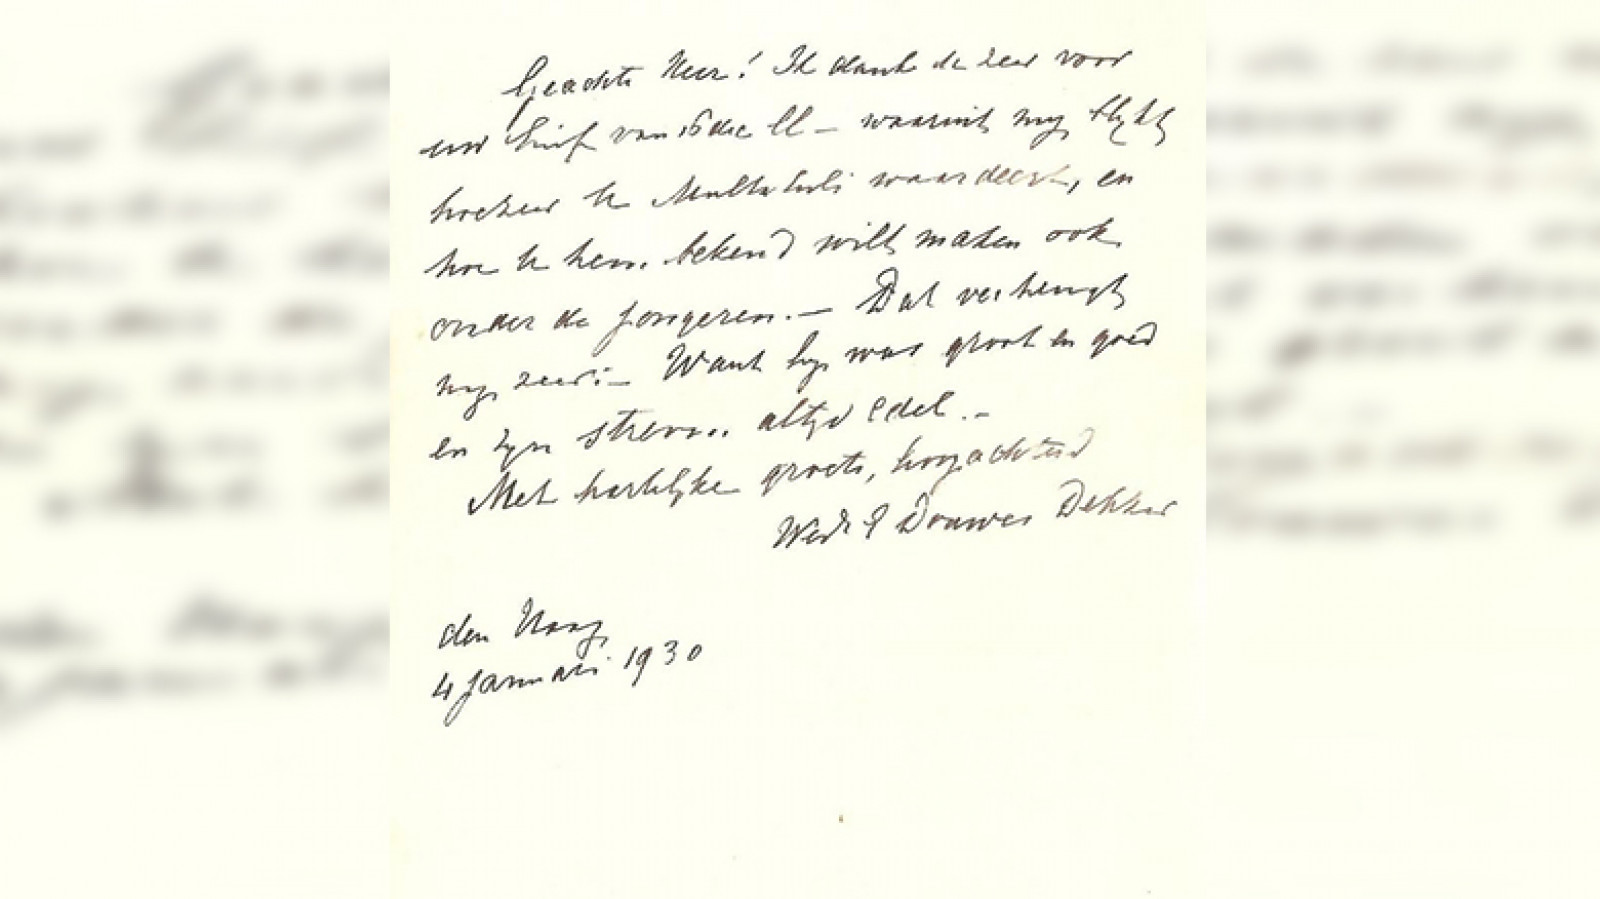 Geachte Heer! Ik dank U zeer voor
uw brief van 15 dec ll – waaruit mij blijkt
hoezeer U Multatuli waardeert, en
hoe U hem bekend wilt maken ook
onder de jongeren. – Dat verheugt
mij zeer: – Want hij was groot en goed
en zijn streven altijd edel. –
Met hartelijke groete, hoogachtend
Wed. E Douwes Dekker
den Haag
4 januari 1930